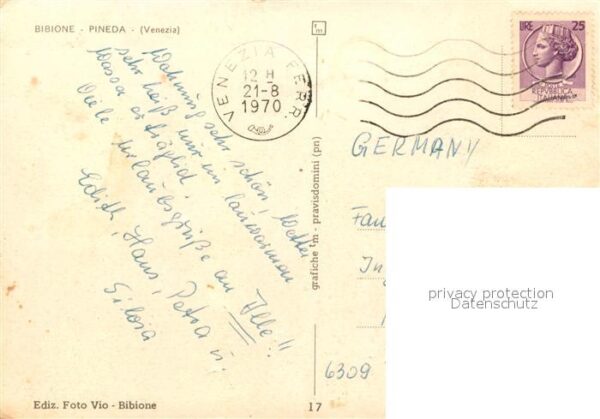 BIBIONE - PINEDA - (Venezia)
Wohnung sehr schön, Wetter
sehr heiß nur im lauwarmen
Wasser erträglich.
Viele Urlaubsgrüße an Alle!!
Edith, Hans, Petra u.
Silvia
Ediz. Foto Vio - Bibione
17
grafiche tm - pravisdomini (pn)
tm
VENEZIA FERR.
12 H
21-8
1970
LIRE 25
REPVBBLICA
ITALIANA
GERMANY
Fam
In
6309
privacy protection
Datenschutz